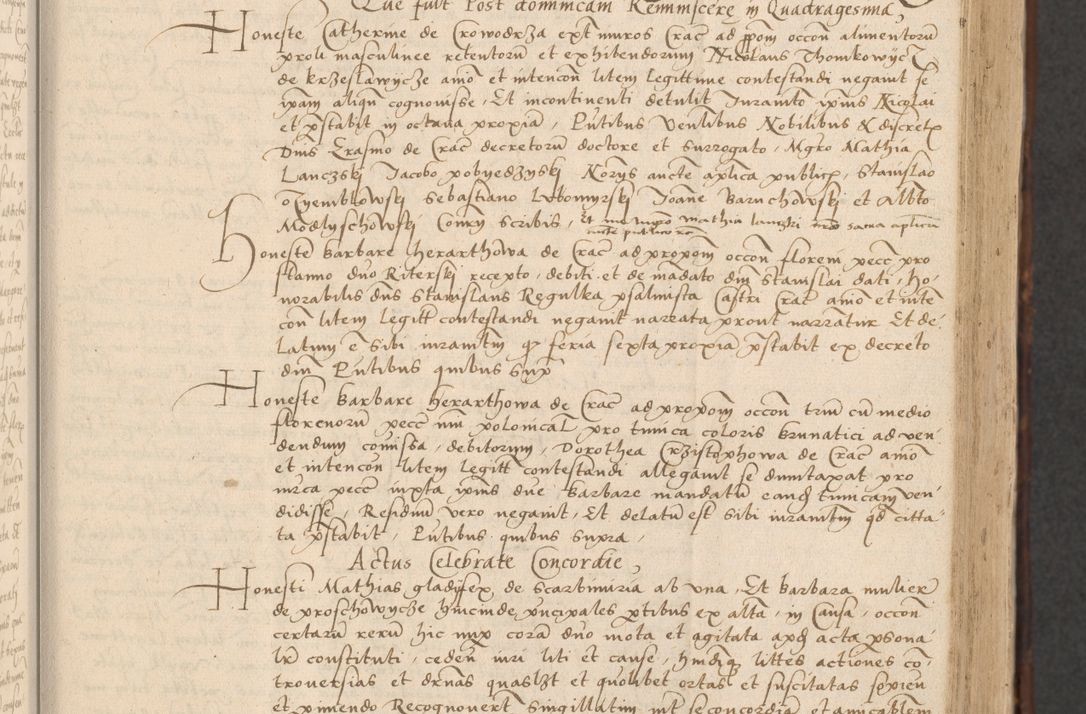 Que fuit Post dominicam Reminiscere in Quadragesima,
Honeste Catherine de Crowodrza ext muros Crac ad ppom occon alimentoru
proli masculinee retentoru et exhibendorum Nicolaus Thomkowycz
de Krzeslawycze aiño et intencon litem legittime contestandi negavit se
ipam aliqn cognouisse, Et incontinenti detulit Juramto ipius Nicolai
et pstabit in octaua propia, Pntibus venlibus Nobilibus & discretis
Dnis Erasmo de Crac decretoru doctore et surrogato, Mgro Mathia
Lanczskj Jacobo pobyedzyskj Norys aucte aplica publicis, Stanislao
Oczyemblowskj Sebastiano Lubomyrskj Joane Baruchowskj et Albto
Modlyschowskj Conry scribis, Et me mgro Mathia lanczkj sacra aplica
aucte publico
Honeste Barbare herarthowa de Crac ad propom occon floreni pecc pro
stanno dno Riterskj recepto, debiti et de madato dni Stanislai dati, ho-
norabilis dns Stanislaus Regulka psalmista Castri Crac aiño et inte
con litem legitt contestandi negauit narrata prout narratur Et de-
latum e sibi iuramtm qz feria sexta propia pstabit ex decreto
dni Pntibus quibus supra
Honeste Barbare herarthowa de Crac ad propom occon triu cu medio
florenoru pecc nui polonical pro tunica coloris brunatici ad ven-
dendum comissa, debitorum, Dorothea Crzistophowa de Crac aiño
et intencon litem legitt contestandi allegauit se dumtaxat pro
mrca pecc iuxta ipius due Barbare mandatu eand tunicam ven-
didisse, Residuu vero negauit, Et delatu est sibi iuramtm qd citta-
ta pstabit, Pntibus quibus supra,
Actus Celebrate Concordie,
Honesti Mathias gladifex de Scarbimiria ab vna, Et Barbara mulier
de proschowycze hincinde pncipales ptibus ex alta, in Causa, occon
certaru reru hic nup cora dno mota et agitata apd acta psona-
lr constituti, ceden iuri liti et cause, hmdiqz littes actiones co-
trouersias et drnas quaslzt et quolibet ortas et suscitatas sopien
et ximendo Recognouert singillatim int se concordia et amicablem